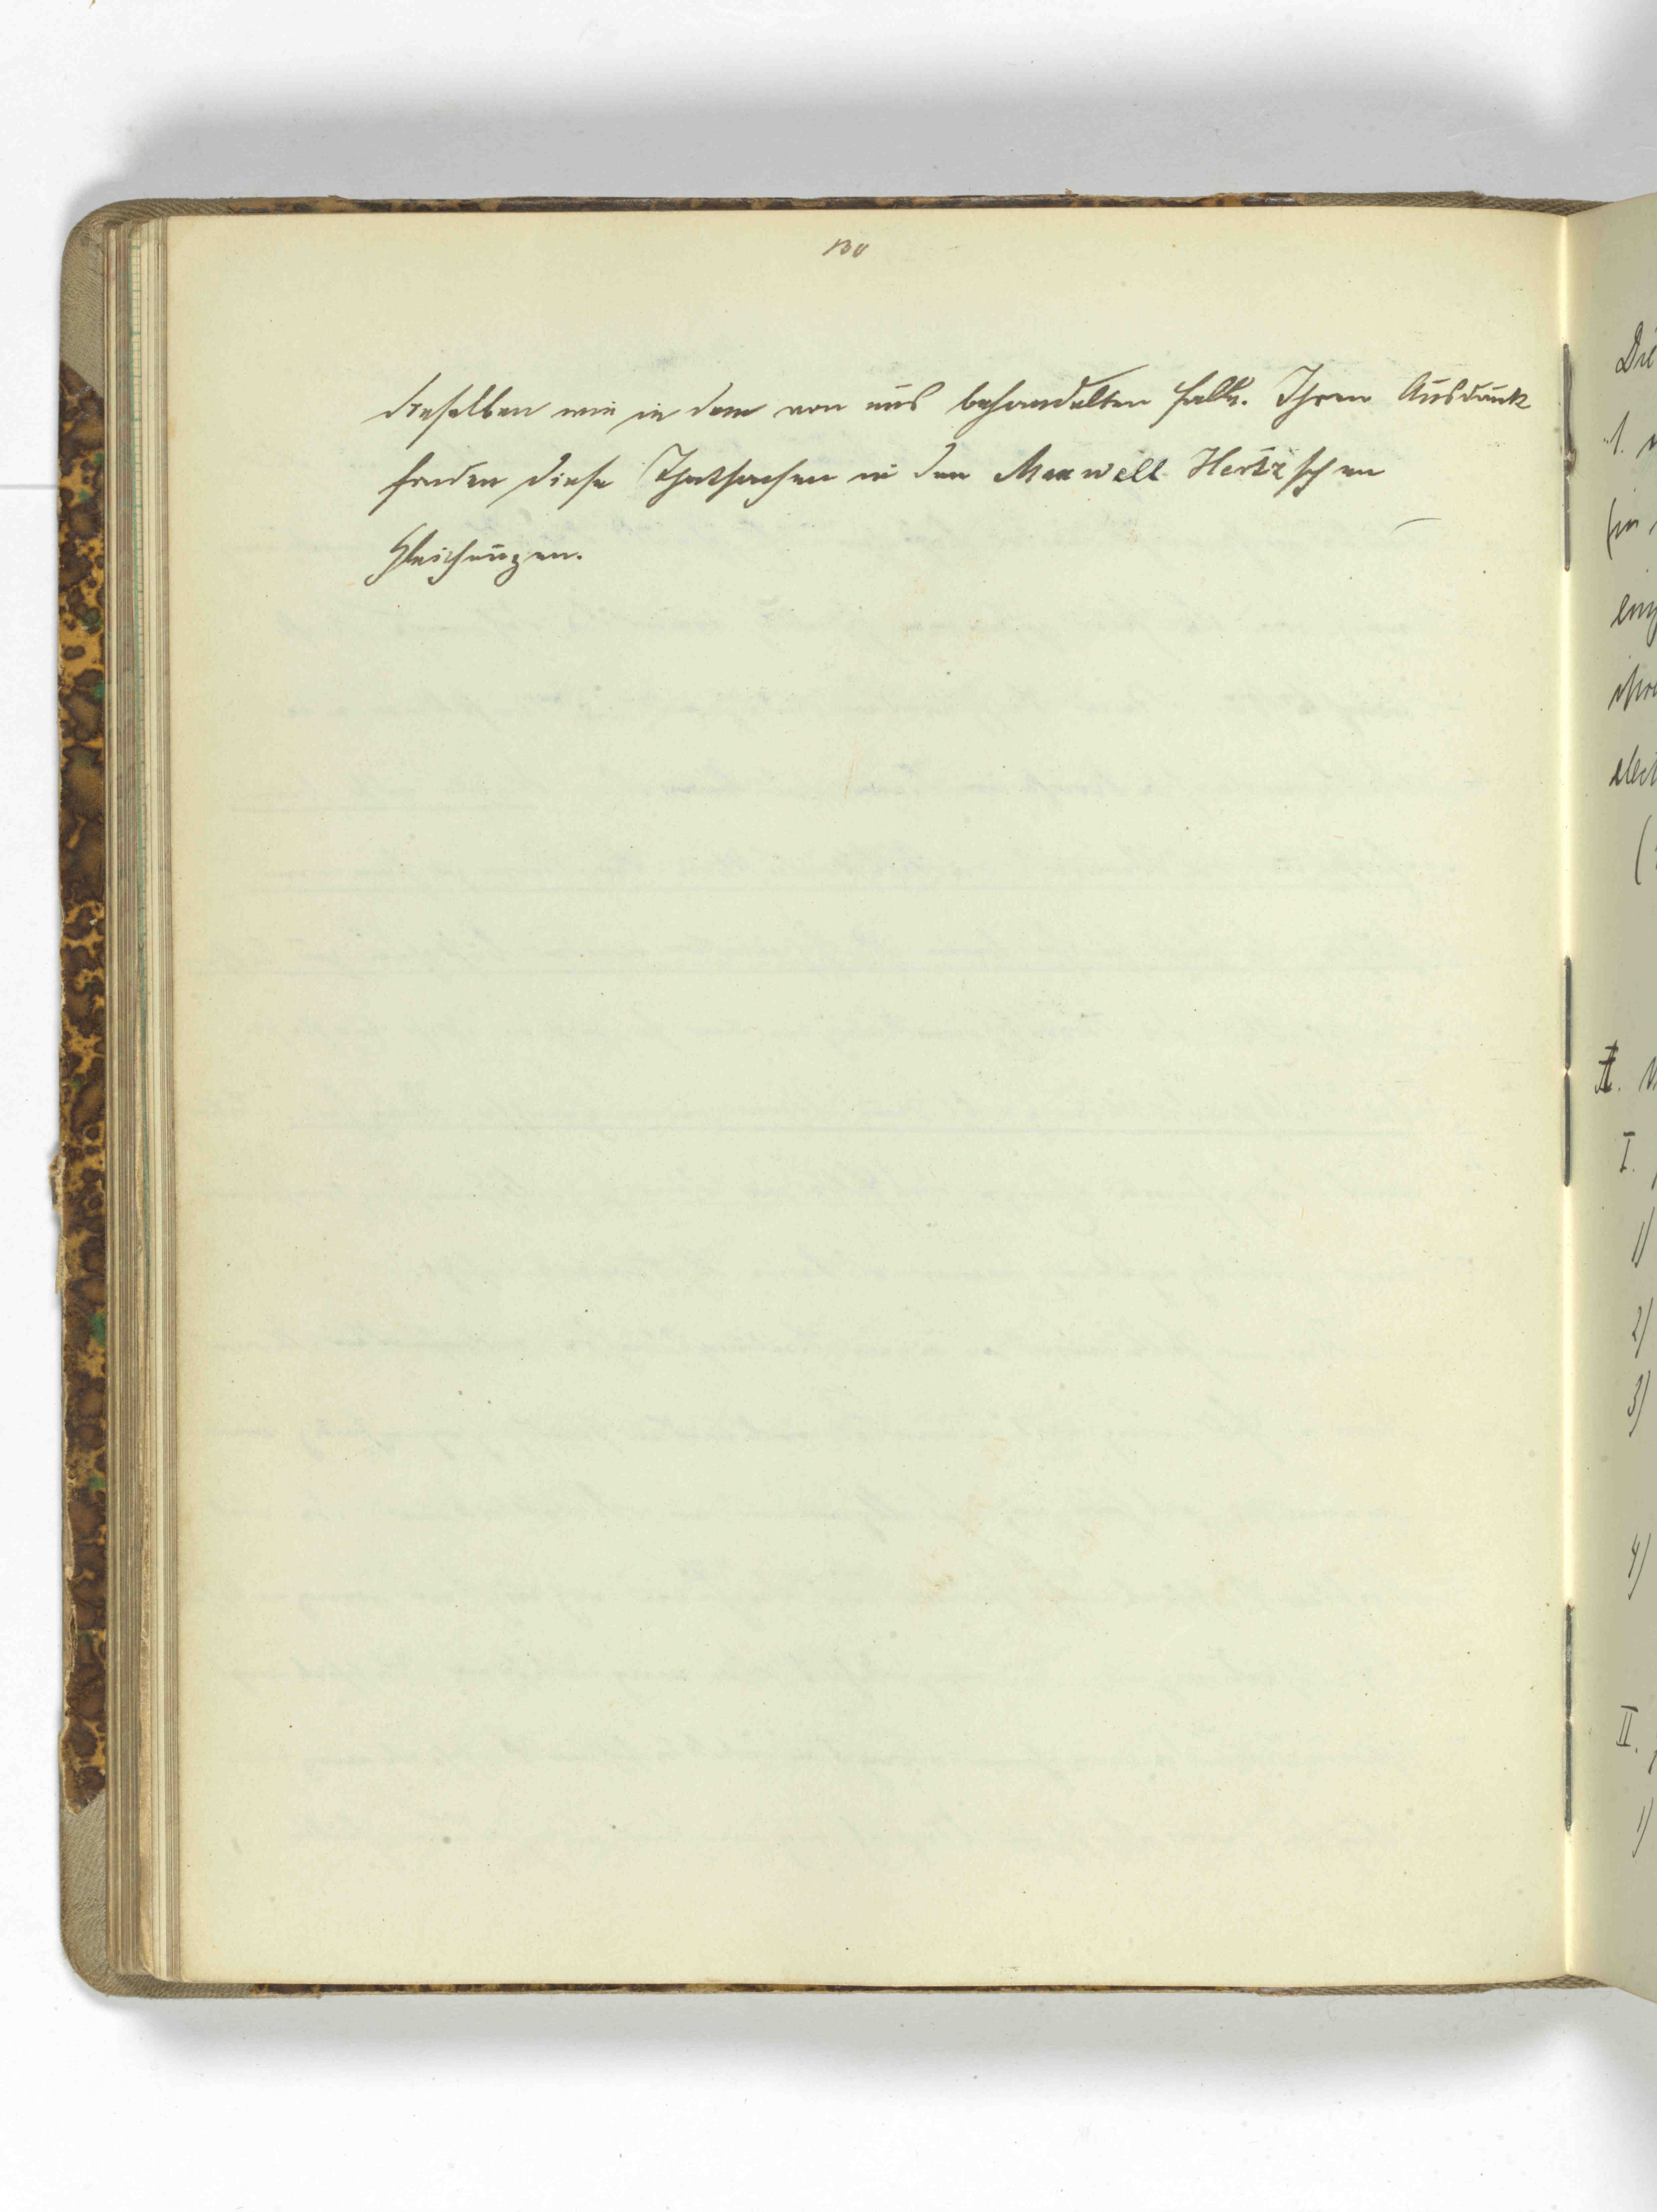 130
dieselben wie in dem von uns behandelten Falle. Ihren Ausdruck
finden diese Thatsachen in den Maxwell Hertz'schen
Gleichungen.
Die
1.
elect
A.
I.
1)
2)
3)
4)
II.
1)